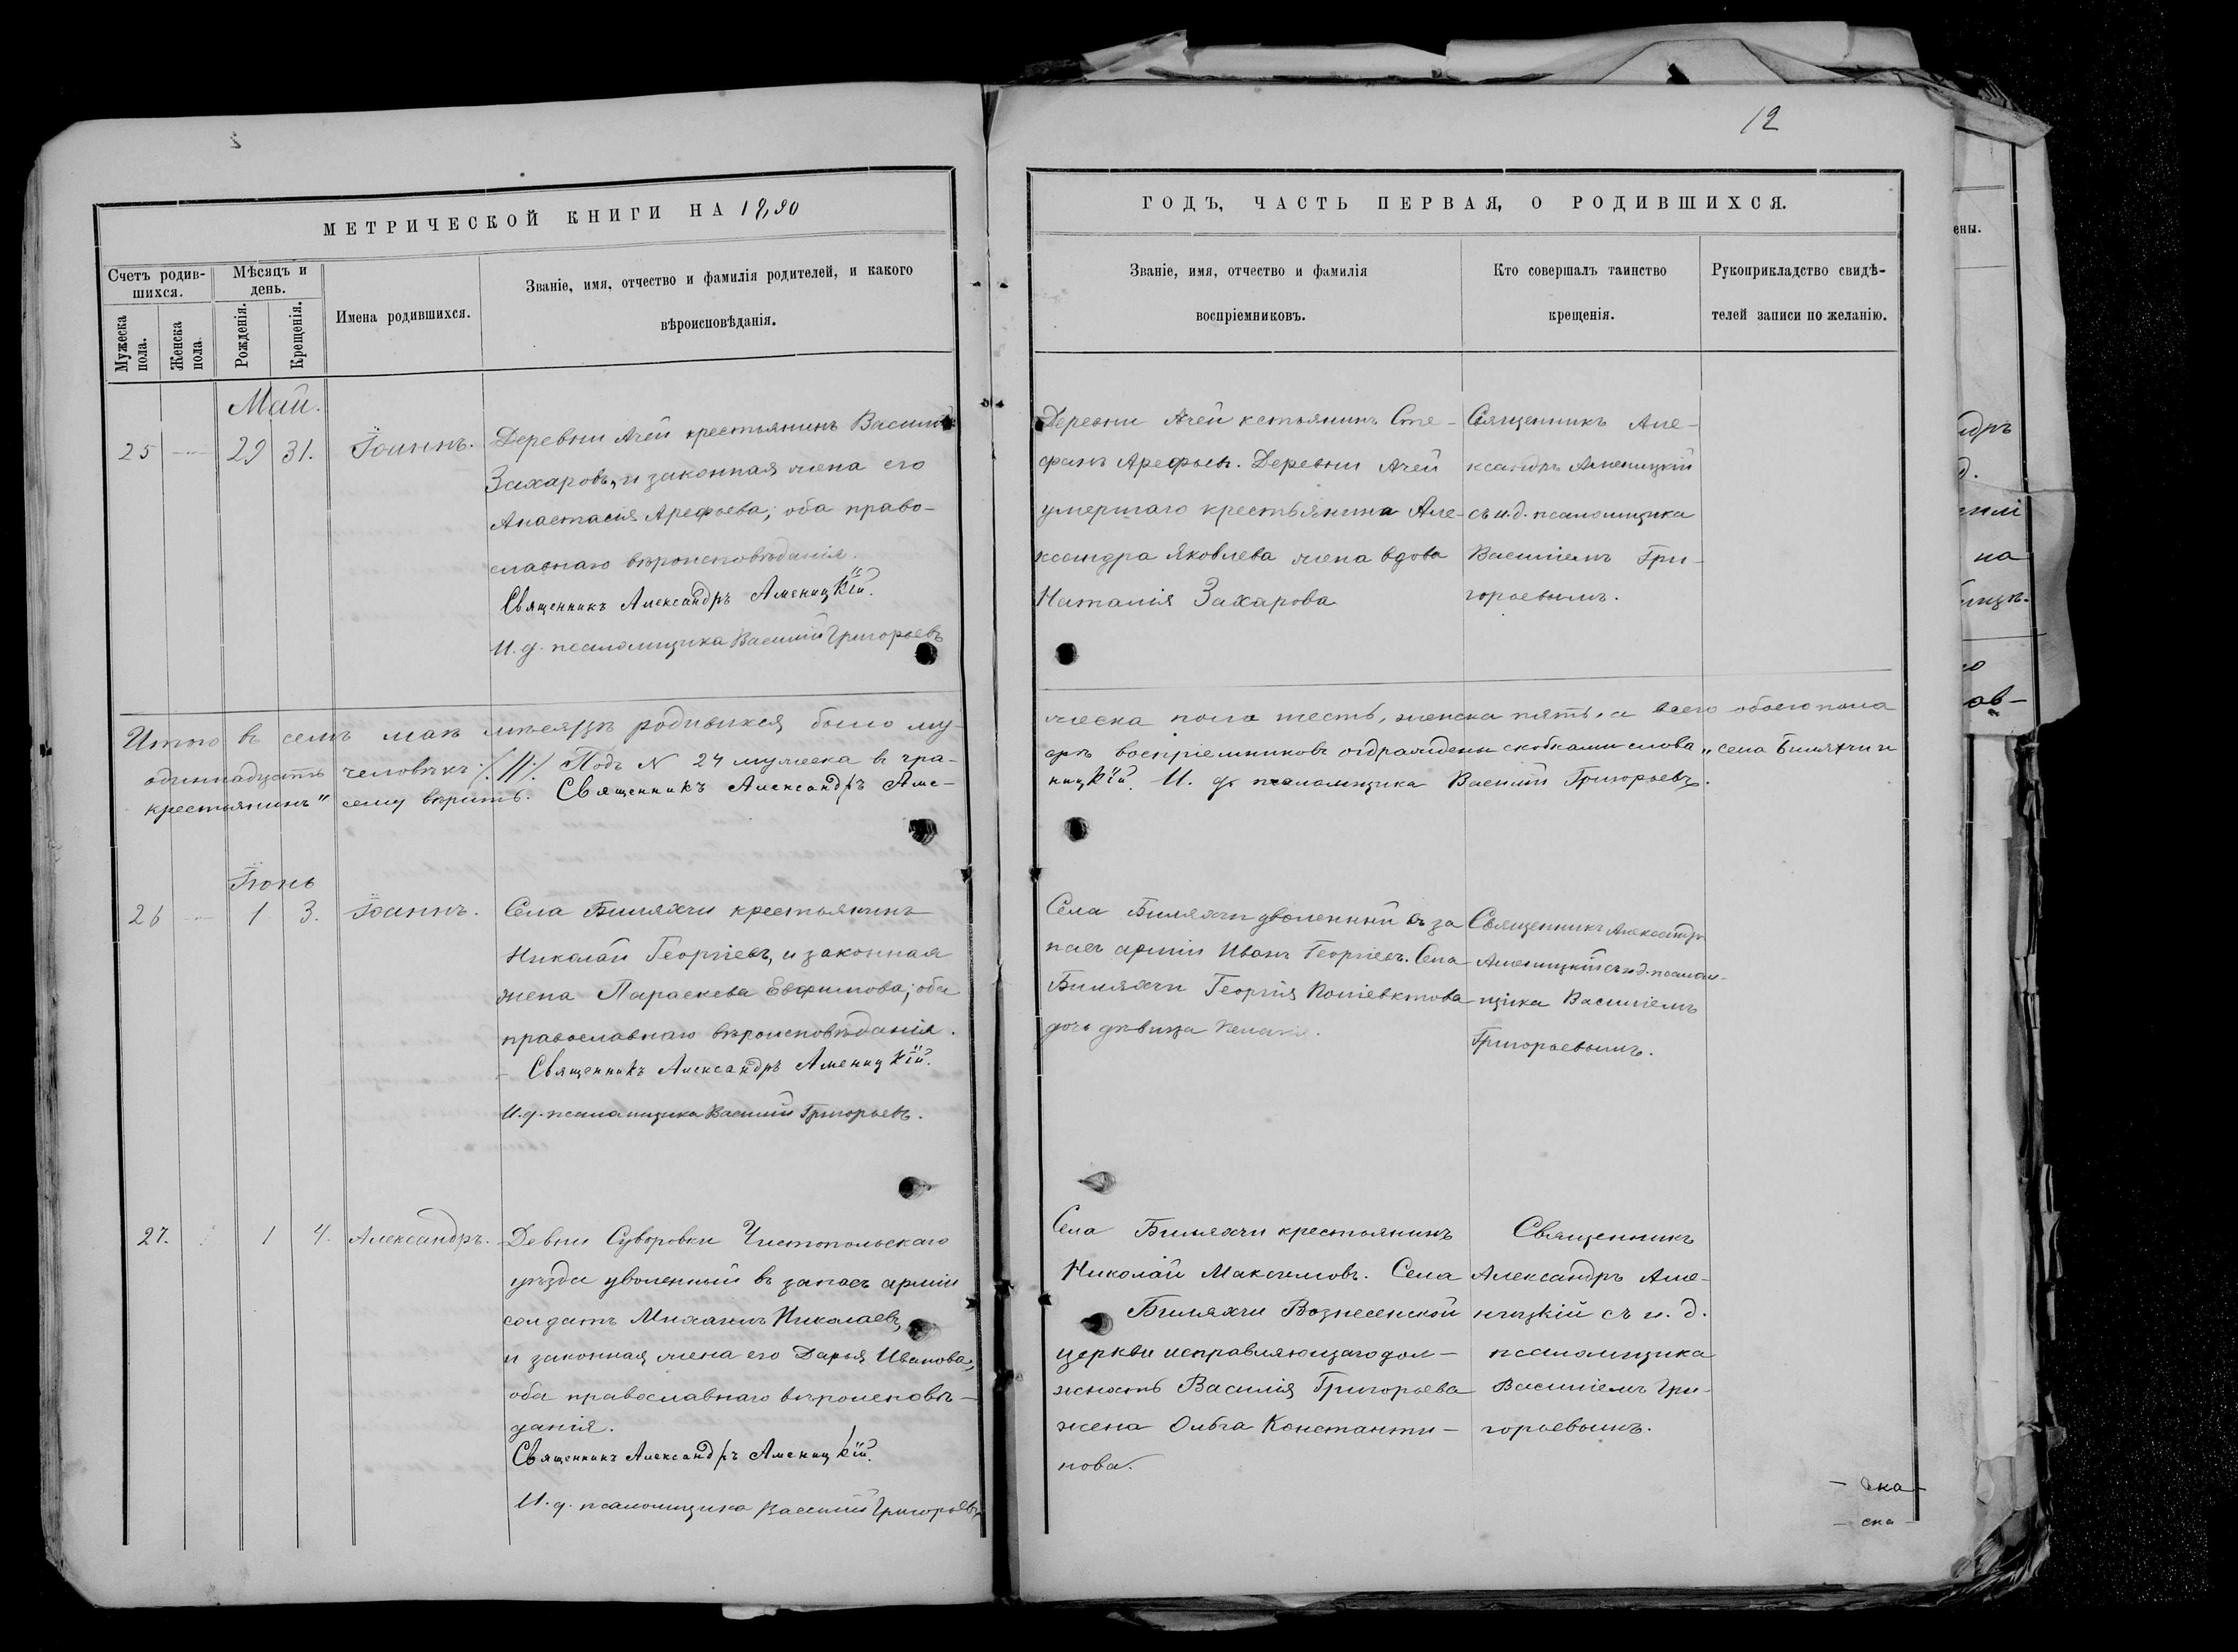 12
МЕТРИЧЕСКОЙ КНИГИ НА 1890
Счетъ родив-
шихся.
Мужеска
пола.
Женска
пола.
Мѣсяцъ и
день.
Рожденія.
Крещенія.
Имена родившихся.
Званіе, имя, отчество и фамилія родителей, и какого
вѣроисповѣданія.
ГОДЪ, ЧАСТЬ ПЕРВАЯ, О РОДИВШИХСЯ.
Званіе, имя, отчество и фамилія
воспріемниковъ.
Кто совершалъ таинство
крещенія.
Рукоприкладство свидѣ-
телей записи по желанію.
Май.
25
29
31.
Іоаннъ.
Деревни Ачей крестьянинъ Василій
Захаровъ, и законная жена его
Анастасія Арефьева; оба право-
славнаго вѣроисповѣданія.
Священникъ Александръ Аменицкій.
И. д. псаломщика Василій Григорьевъ
Деревни Ачей кстьянинъ Сте-
фанъ Арефьевъ. Деревни Ачей
умершаго крестьянина Але-
ксандра Яковлева жена вдова
Наталія Захарова
Священникъ Але-
ксандръ Аменицкій
съ и. д. псаломщика
Василіемъ Гри-
горьевымъ.
Итого въ семъ маѣ мѣсяцѣ родившихся было му-
жеска пола шесть, женска пять, а всего обоего пола
одиннадцать человѣкъ ./11/. Подъ N 24 мужеска въ гра-
фѣ воспріемниковъ ограждены скобками слова „села Биляхчи и
крестьянинъ" сему вѣрить. Священникъ Александръ Аме-
ницкій. И. д. псаломщика Василій Григорьевъ.
Іюнь
26
1
3.
Іоаннъ.
Села Биляхчи крестьянинъ
Николай Георгіевъ, и законная
жена Параскева Евфимова; оба
православнаго вѣроисповѣданія.
Священникъ Александръ Аменицкій.
И. д. псаломщика Василій Григорьевъ.
Села Биляхчи уволенный въ за
пасъ арміи Иванъ Георгіевъ. Села
Биляхчи Георгія Поліевктова
дочь дѣвица
Священникъ Александръ
Аменицкій съ и. д. псалом-
щика Василіемъ
Григорьевымъ.
27.
1
4.
Александръ.
Девни Суворовки Чистопольскаго
уѣзда уволенный въ запасъ арміи
солдатъ Михаилъ Николаевъ,
и законная жена его Дарья Иванова,
оба православнаго вѣроисповѣ-
данія.
Священникъ Александръ Аменицкій.
И. д. псаломщика Василій Григорьевъ
Села Биляхчи крестьянинъ
Николай Максимовъ. Села
Биляхчи Вознесенской
церкви исправляющаго дол-
жность Василія Григорьева
жена Ольга Константи-
нова.
Священникъ
Александръ Аме-
ницкій съ и. д.
псаломщика
Василіемъ Гри-
горьевымъ.